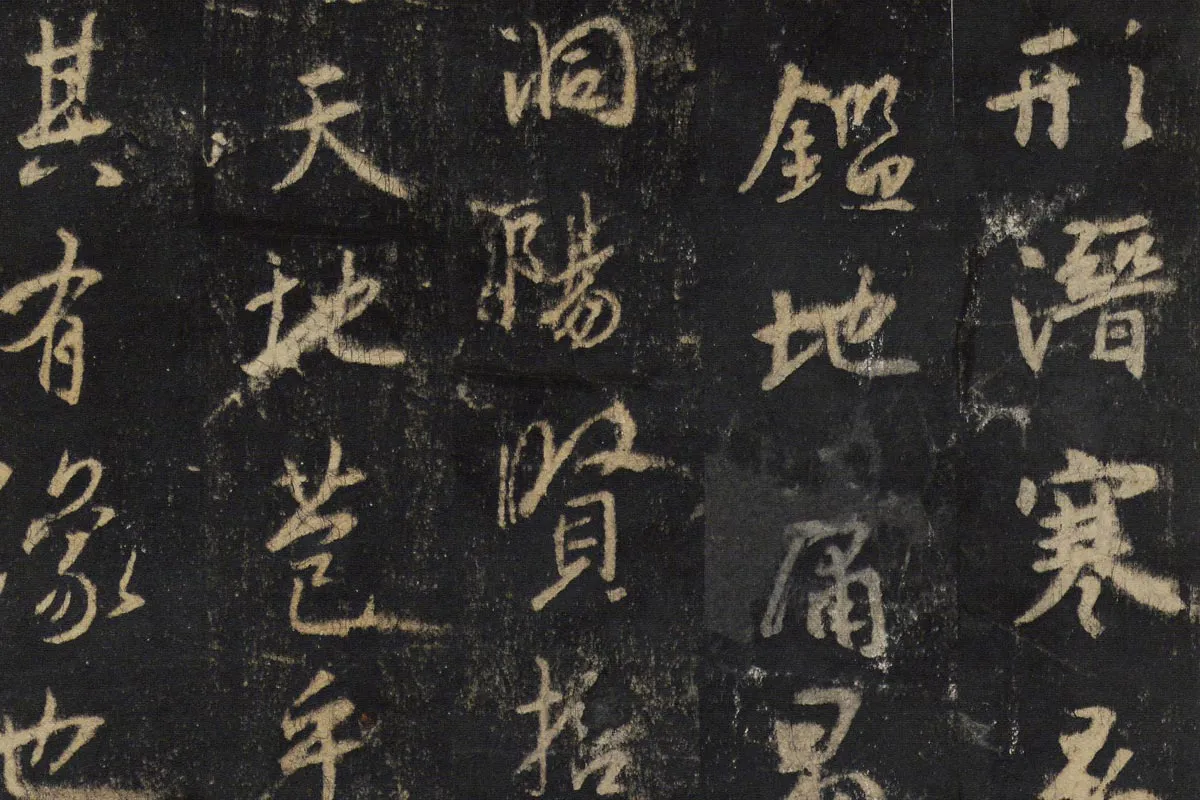 形潛寒
鑑地庸
洞陽賢哲
天地苞乎
其有像也